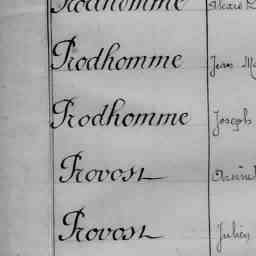 Prodhomme
Prodhomme Jean
Prodhomme Joseph
Provost
Provost Julien